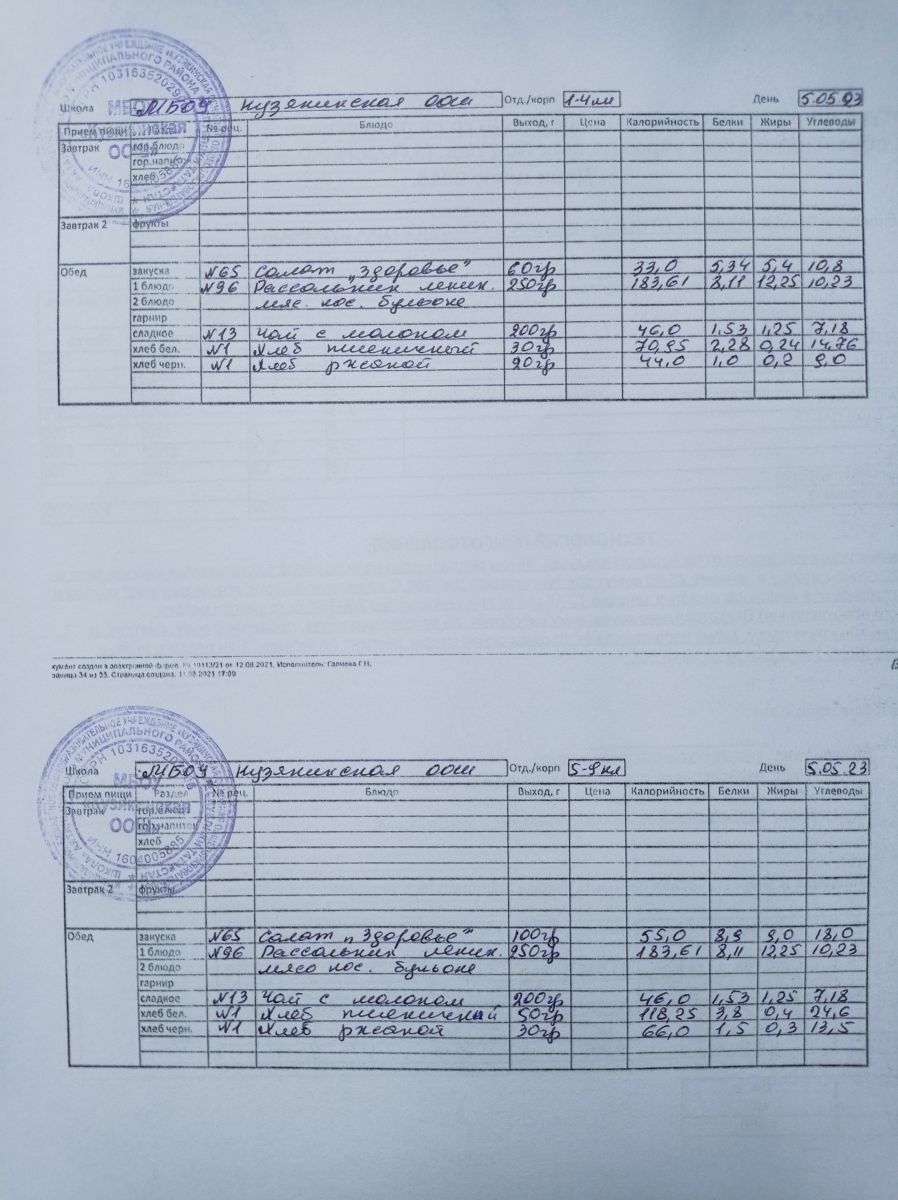 Школа МБОУ Кузякинская ООШ Отд./корп 1-4 кл День 5.05.23
Прием пищи Раздел № рец. Блюдо Выход, г Цена Калорийность Белки Жиры Углеводы
Завтрак гор.блюдо
гор.напиток
хлеб
Завтрак 2 фрукты
Обед закуска №65 Салат „Здоровье" 60гр 33,0 5,34 5,4 10,8
1 блюдо №96 Рассольник ленин. 250гр 183,61 8,11 12,25 10,23
2 блюдо мяс. кос. бульоне
гарнир
сладкое №13 Чай с молоком 200гр 46,0 1,53 1,25 7,18
хлеб бел. №1 Хлеб пшеничный 30гр 70,95 2,28 0,24 14,76
хлеб черн. №1 Хлеб ржаной 20гр 44,0 1,0 0,2 9,0
ТЕХНОЛОГИЯ ПРИГОТОВЛЕНИЯ
кумент создан в электронной форме. № 10113/21 от 12.08.2021. Исполнитель: Галиева Г.Н.
раница 34 из 35. Страница создана: 11.08.2021 17:09
Школа МБОУ Кузякинская ООШ Отд./корп 5-9 кл День 5.05.23
Прием пищи Раздел № рец. Блюдо Выход, г Цена Калорийность Белки Жиры Углеводы
Завтрак гор.блюдо
гор.напиток
хлеб
Завтрак 2 фрукты
Обед закуска №65 Салат „Здоровье" 100гр 55,0 8,9 9,0 18,0
1 блюдо №96 Рассольник ленин. 250гр 183,61 8,11 12,25 10,23
2 блюдо мясо кос. бульоне
гарнир
сладкое №13 Чай с молоком 200гр 46,0 1,53 1,25 7,18
хлеб бел. №1 Хлеб пшеничный 50гр 118,25 3,8 0,4 24,6
хлеб черн. №1 Хлеб ржаной 30гр 66,0 1,5 0,3 13,5
МБОУ
ИНН 1604005885